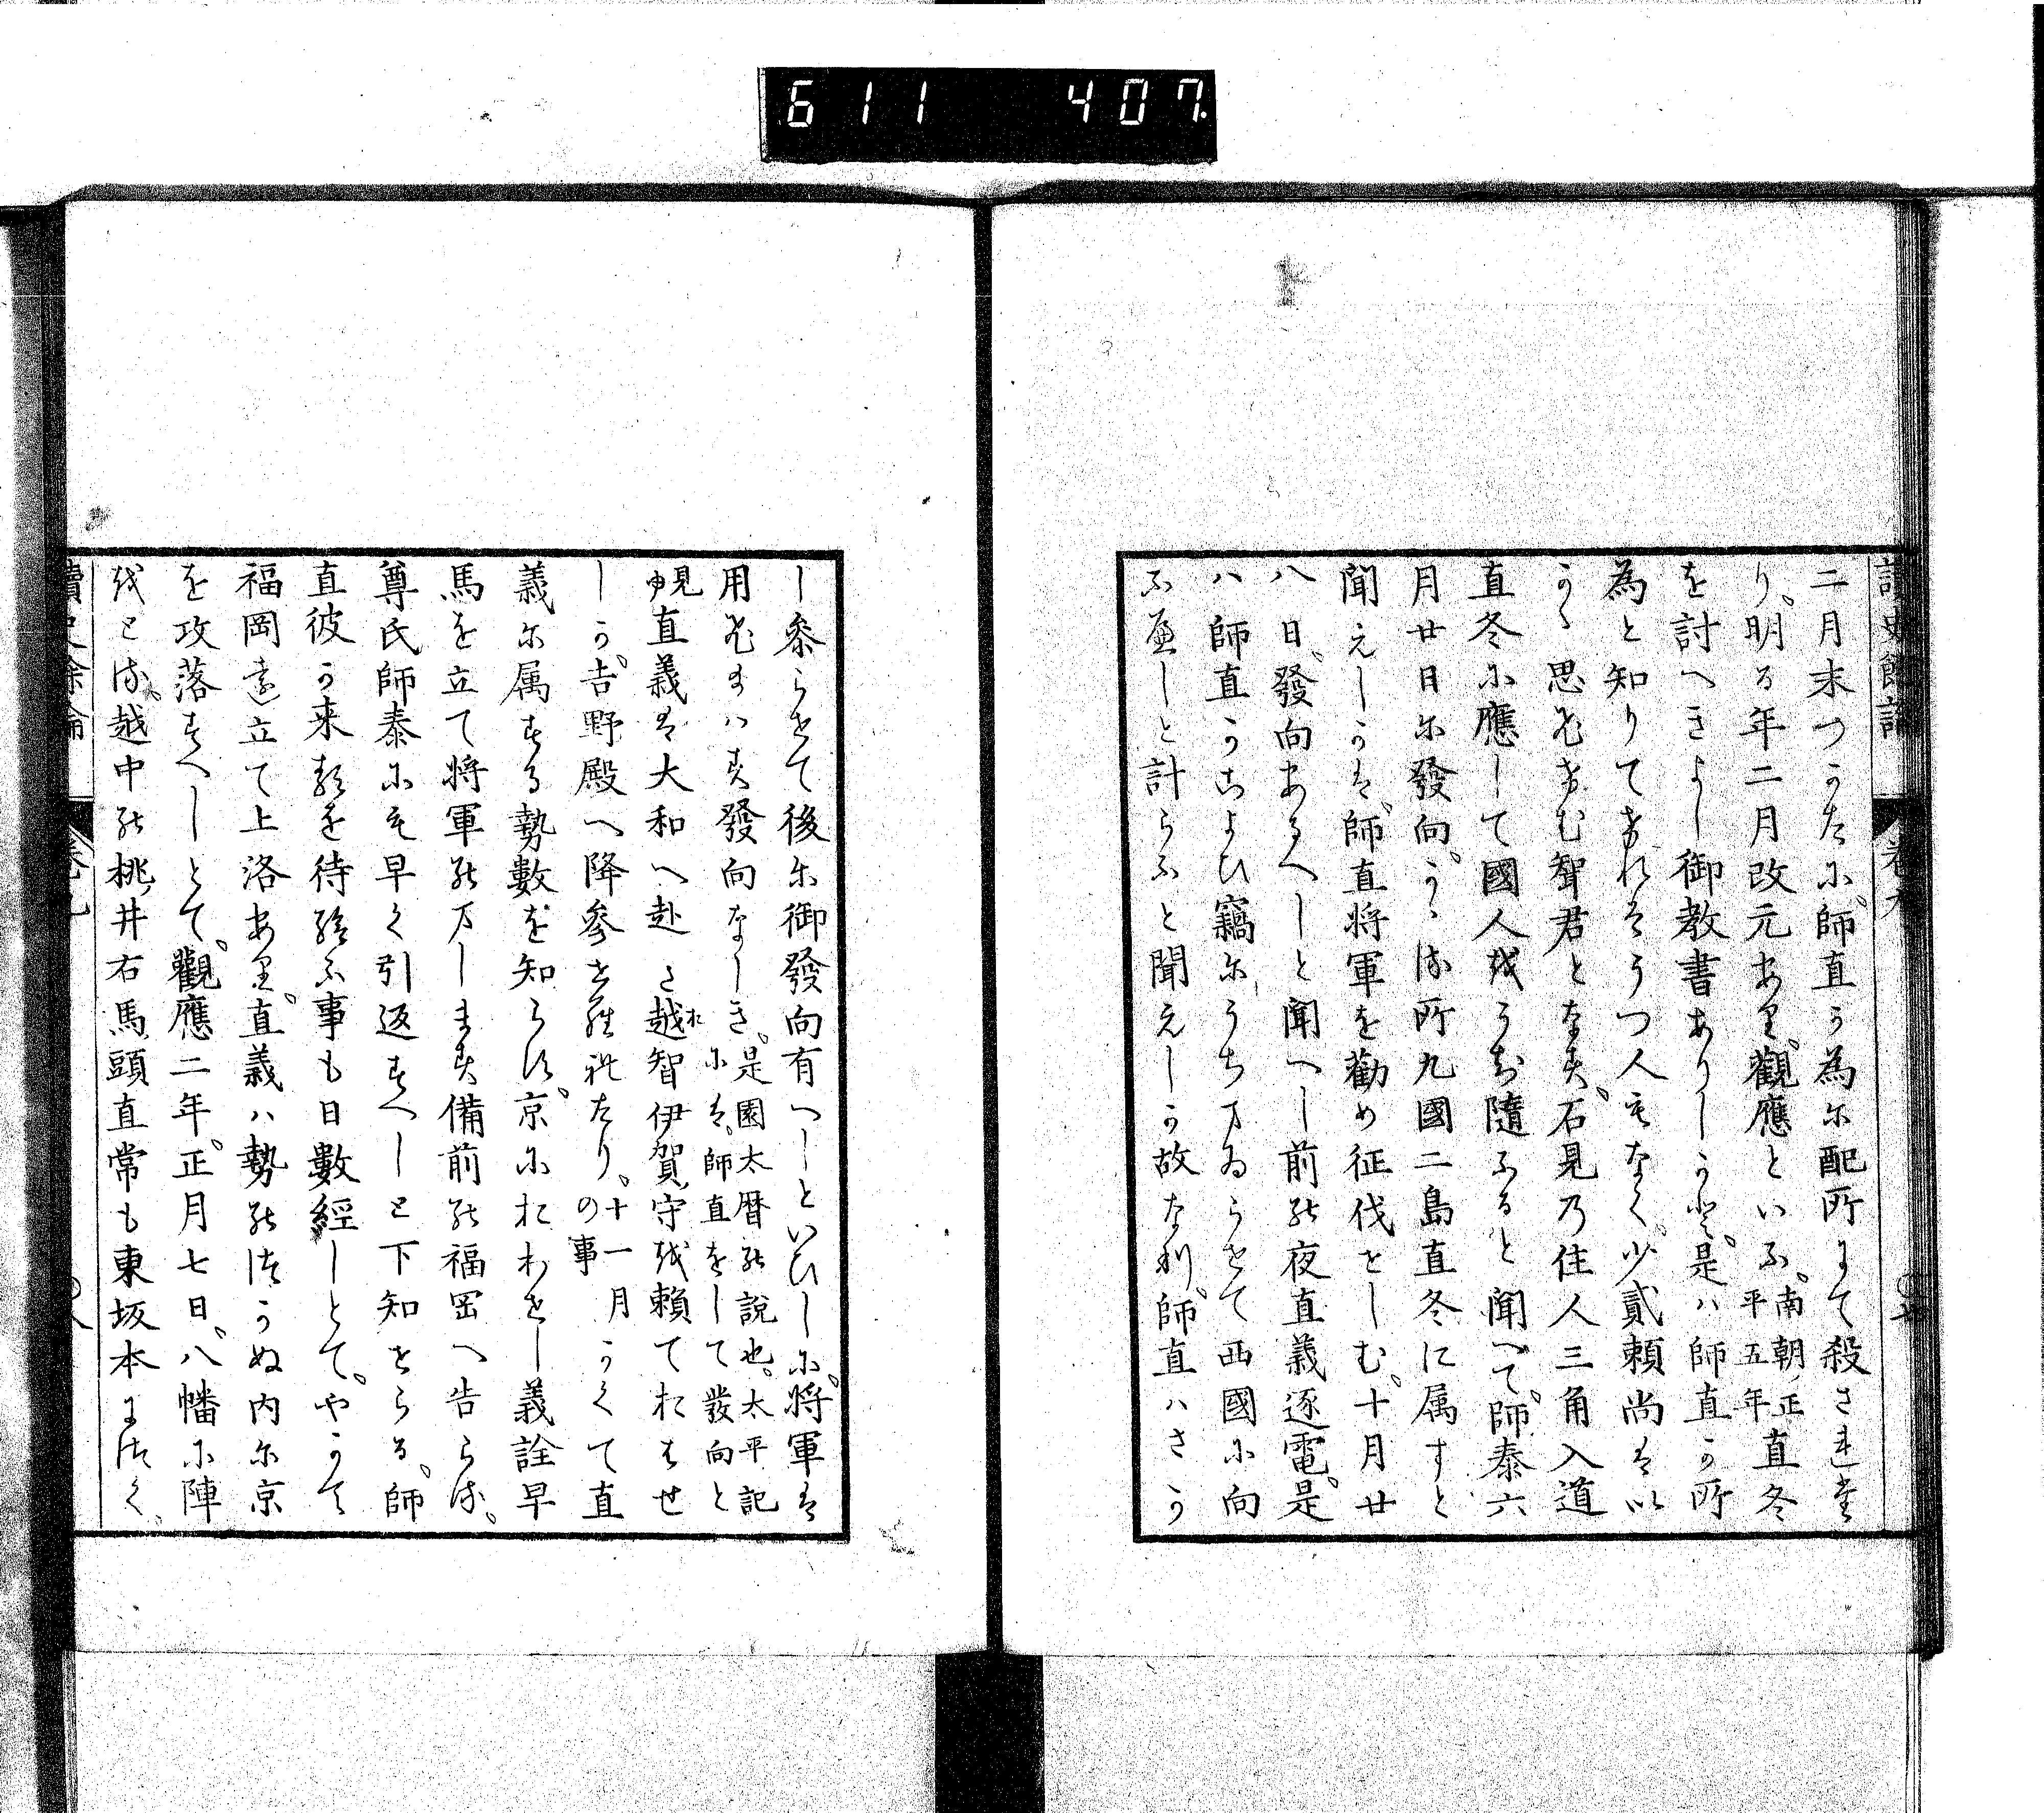 611 407
二月末つかたに師直か為に配所にて殺され畢
り明る年二月改元あり觀應といふ南朝正平五年直冬
を討へきよし御教書ありしかと是ハ師直か所
為と知りてけれはうつ人もなく少貳頼尚は以
かゝ思ひけむ聟君となす石見乃住人三角入道
直冬に應して國人をうち隨ふると聞へて師泰六
月廿日に發向かゝる所九國二島直冬に属すと
聞えしかは師直将軍を勧め征伐せしむ十月廿
八日發向あるへしと聞へし前の夜直義逐電是
ハ師直かこよひ竊にうちまゐらせて西國に向
ふへしと計らふと聞えしか故なり師直ハさか
し參らせて後に御發向有へしといひしに将軍は
用ひすハす發向なしき是園太暦の説也太平記に は師直をして發向と
見ゆ直義は大和へ赴き越智伊賀守を頼ておはせ
しか吉野殿へ降參せられたり十一月の事かくて直
義に属する勢數を知らす京におわせし義詮早
馬を立て将軍のまします備前の福岡へ告らる
尊氏師泰にも早く引返すへしと下知せらる師
直彼か来るを待給ふ事も日數經しとてやかて
福岡を立て上洛あり直義ハ勢のつかぬ内に京
を攻落すへしとて觀應二年正月七日八幡に陣
をとる越中の桃井右馬頭直常も東坂本につく
讀史餘論 卷九